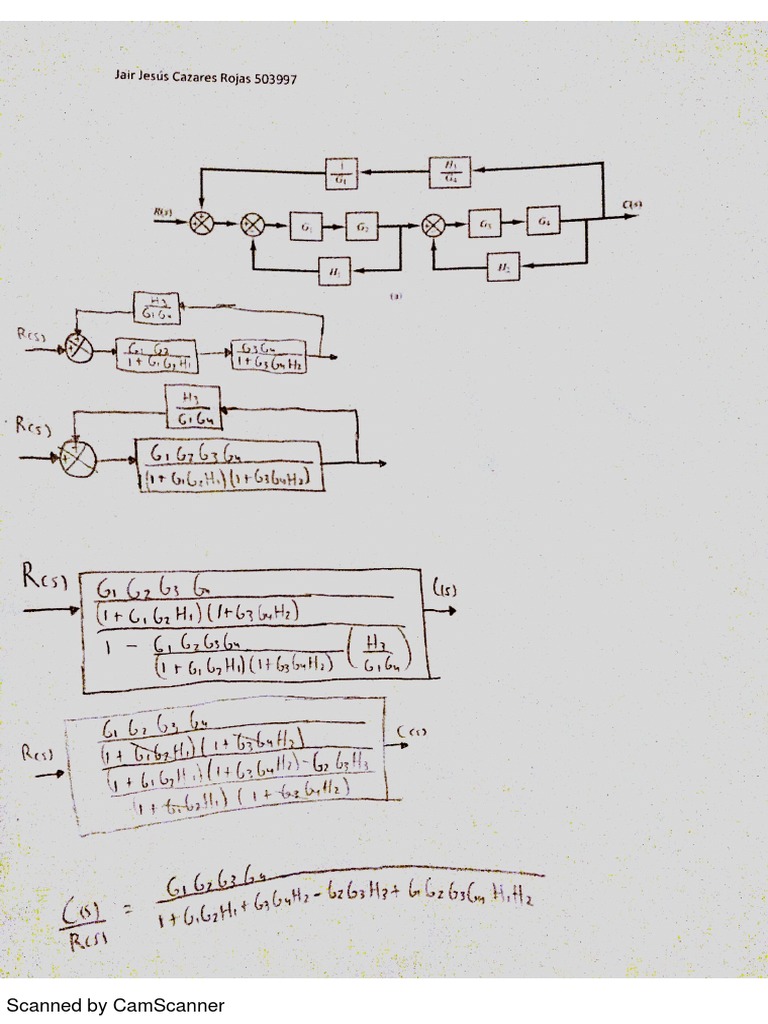 Jair Jesús Cazares Rojas 503997
1/G₁ H₃/G₄
R(s) G₁ G₂ G₃ G₄ C(s)
H₁ H₂
(a)
H₃/G₁G₄
R(s) G₁ G₂/1+G₁G₂H₁ G₃G₄/1+G₃G₄H₂
H₃/G₁G₄
R(s) G₁G₂G₃G₄/(1+G₁G₂H₁)(1+G₃G₄H₂)
R(s) G₁ G₂ G₃ G₄ C(s)
(1+G₁G₂H₁)(1+G₃G₄H₂)
1 - G₁G₂G₃G₄/(1+G₁G₂H₁)(1+G₃G₄H₂) (H₃/G₁G₄)
R(s) G₁ G₂ G₃ G₄ C(s)
(1+G₁G₂H₁)(1+G₃G₄H₂)
(1+G₁G₂H₁)(1+G₃G₄H₂)-G₂G₃H₃
(1+G₁G₂H₁)(1+G₃G₄H₂)
C(s)/R(s) = G₁G₂G₃G₄/1+G₁G₂H₁+G₃G₄H₂-G₂G₃H₃+G₁G₂G₃G₄H₁H₂
Scanned by CamScanner